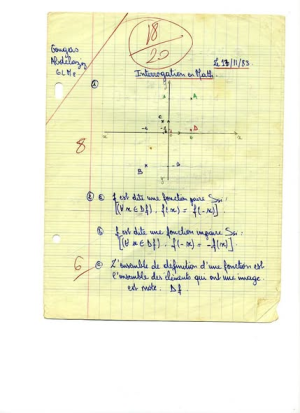 18
20
Le 13/11/83
Gougas
Abdelaziz
Interrogation en Math.
①
8
② ⓐ f est dite une fonction paire SSi :
[(∀ x ∈ Df) . f(x) = f(-x)].
ⓑ f est dite une fonction impaire SSi :
[(∀ x ∈ Df) . f(-x) = -f(x)].
6
ⓒ L'ensemble de definition d'une fonction est
l'ensemble des elements qui ont une image.
est noté : Df